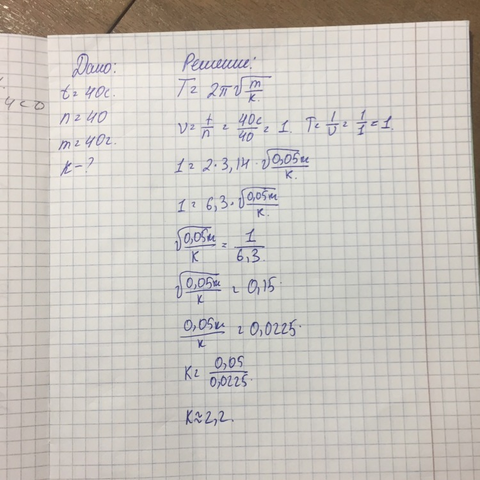 Дано:
t = 40с.
n = 40
m = 40г.
k - ?
Решение:
T = 2π√(m/k)
ν = t/n = 40с/40 = 1. T = 1/ν = 1/1 = 1.
1 = 2·3,14·√(0,05кг/k)
1 = 6,3·√(0,05кг/k)
√(0,05кг/k) = 1/6,3
√(0,05кг/k) = 0,15.
0,05кг/k = 0,0225.
k = 0,05/0,0225
k ≈ 2,2.